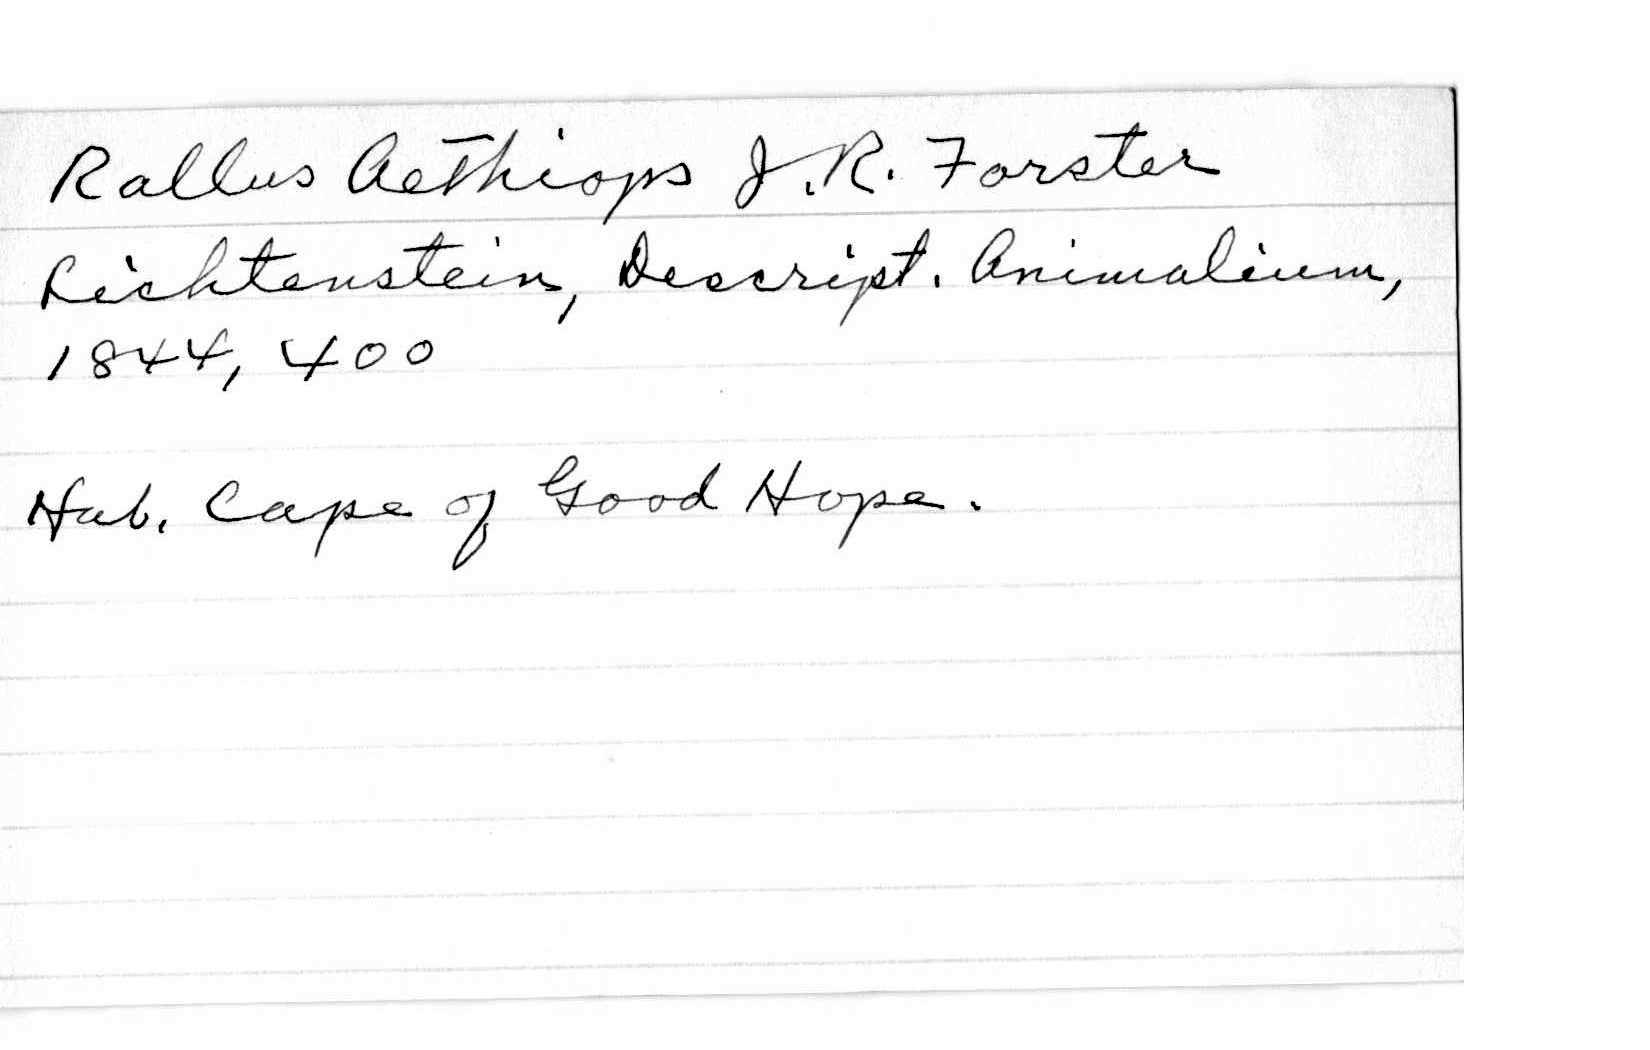 Rallus Aethiops J. R. Forster
Lichtenstein, Descript. Animalium,
1844, 400
Hab. Cape of Good Hope.